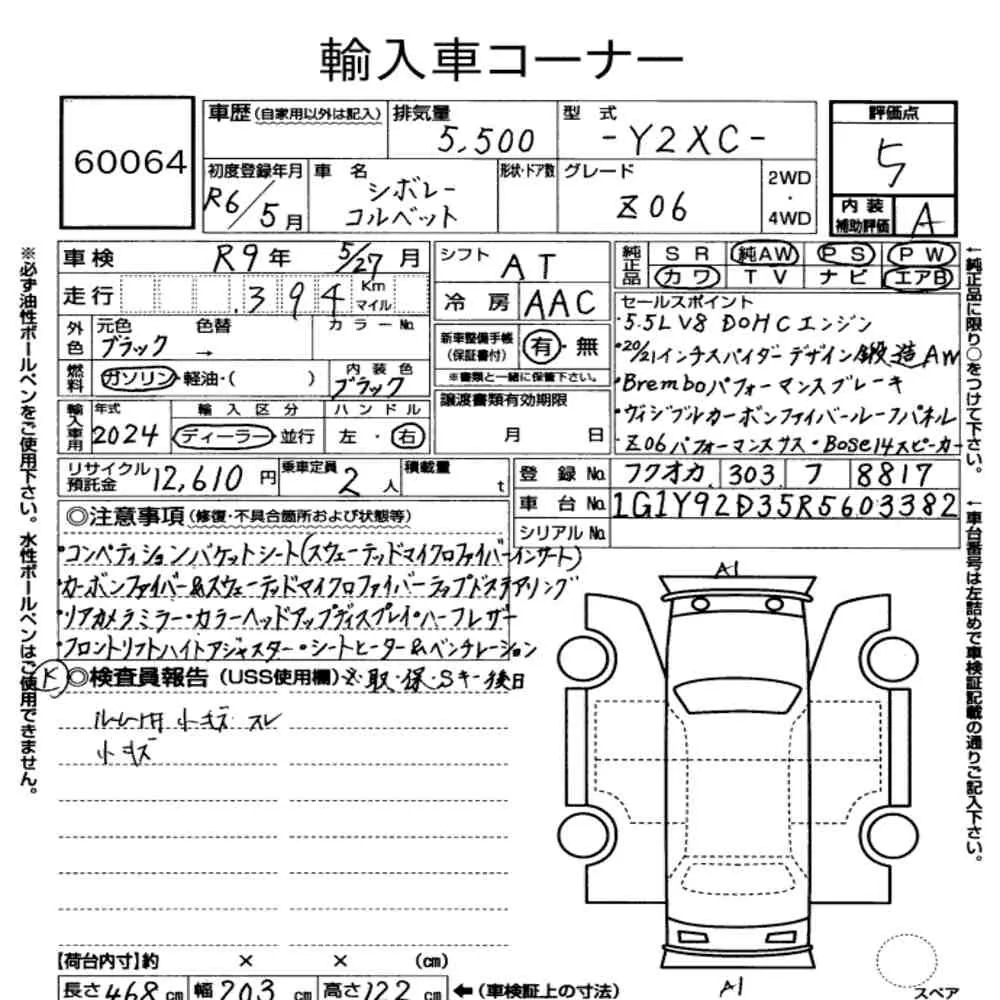 輸入車コーナー
60064
車歴(自家用以外は記入)
排気量
5,500
型式
-Y2XC-
評価点
5
内装補助評価
A
初度登録年月
R6/5月
車名
シボレー
コルベット
形状・ドア数
グレード
Z06
2WD
・
4WD
車検 R9年 5/27月
走行 394 Km マイル
外色 元色 ブラック → 色替 カラーNo.
燃料 ガソリン・軽油・( )
内装色 ブラック
輸入車用 年式 2024
輸入区分 ディーラー・並行
ハンドル 左・右
シフト AT
冷房 AAC
新車整備手帳(保証書付) 有・無
※書類と一緒に保管下さい。
譲渡書類有効期限
月 日
純正品 SR 純AW PS PW
カワ TV ナビ エアB
セールスポイント
・5.5L V8 DOHCエンジン
・20/21インチスパイダーデザイン鍛造AW
・Bremboパフォーマンスブレーキ
・ヴィジブルカーボンファイバールーフパネル
・Z06パフォーマンスサス・BOSE14スピーカー
リサイクル預託金 12,610円
乗車定員 2人
積載量 t
登録No. フクオカ 303 フ 8817
車台No. 1G1Y92D35R5603382
シリアルNo.
◎注意事項(修復・不具合箇所および状態等)
・コンペティションバケットシート(スウェーテッドマイクロファイバーインサート)
・カーボンファイバー&スウェーテッドマイクロファイバーラップドステアリング
・リアカメラミラー・カラーヘッドアップディスプレイ・ハーフレザー
・フロントリフトハイトアジャスター・シートヒーター&ベンチレーション
◎検査員報告(USS使用欄)
取・保・Sキー後日
ルーム内 小キズ スレ
小キズ
A1
A1
スペア
【荷台内寸】約 × × (cm)
長さ468cm 幅203cm 高さ122cm ←(車検証上の寸法)
※必ず油性ボールペンをご使用下さい。水性ボールペンはご使用できません。
←純正品に限り○をつけて下さい。
←車台番号は左詰めで車検証記載の通りご記入下さい。